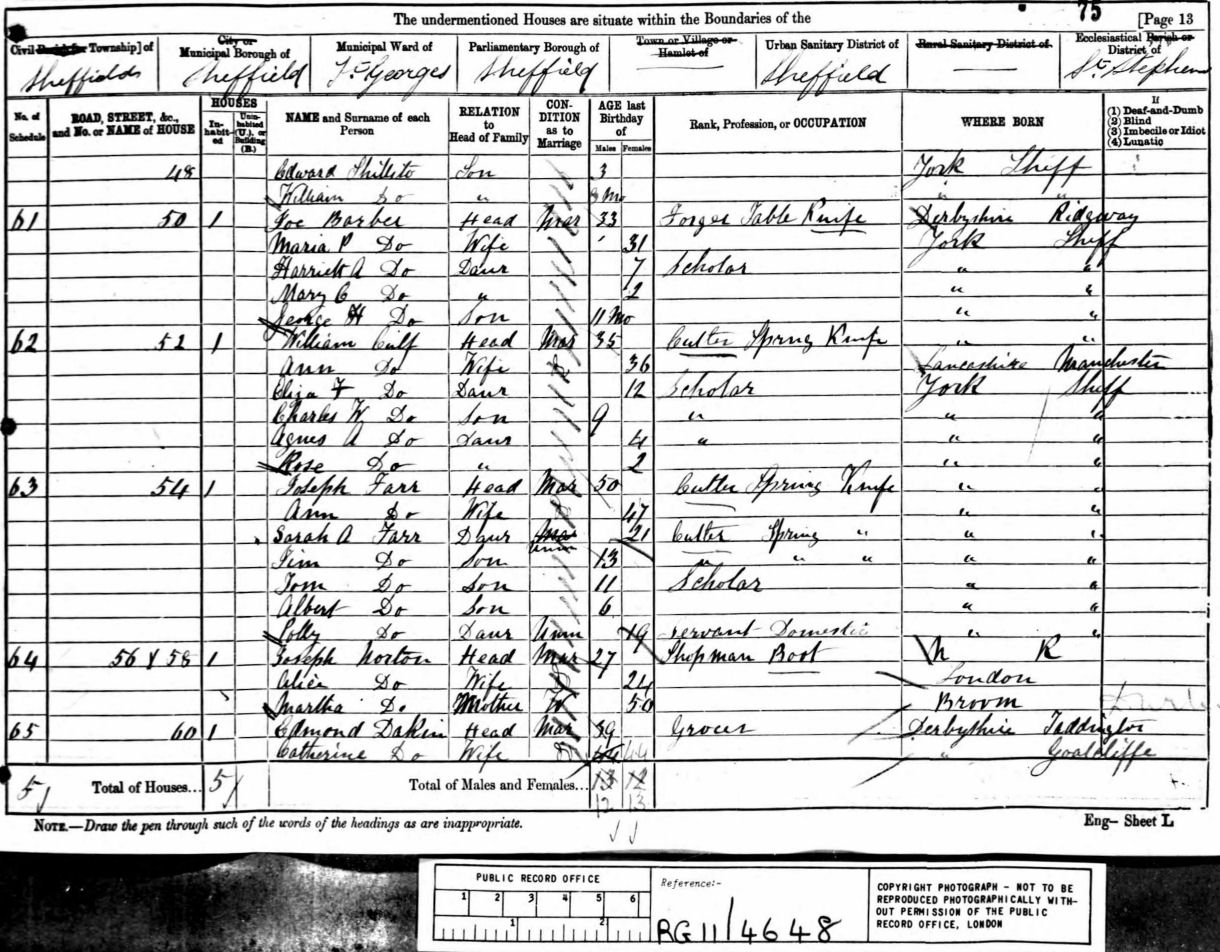 The undermentioned Houses are situate within the Boundaries of the
75
[Page 13
Civil Parish [or Township] of
Sheffield
City or Municipal Borough of
Sheffield
Municipal Ward of
St Georges
Parliamentary Borough of
Sheffield
Town or Village or Hamlet of
Urban Sanitary District of
Sheffield
Rural Sanitary District of
Ecclesiastical Parish or District of
St Stephens
No. of Schedule
ROAD, STREET, &c., and No. or NAME of HOUSE
HOUSES
Inhabited
Uninhabited (U.), or Building (B.)
NAME and Surname of each Person
RELATION to Head of Family
CONDITION as to Marriage
AGE last Birthday of
Males Females
Rank, Profession, or OCCUPATION
WHERE BORN
If
(1) Deaf-and-Dumb
(2) Blind
(3) Imbecile or Idiot
(4) Lunatic
48 Edward Shillito Son 3 York Sheff
William Do " 8 Mo " "
61 50 1 Joe Barber Head Mar 33 Forger Table Knife Derbyshire Ridgway
Maria P Do Wife 31 York Sheff
Harriett A Do Daur 7 Scholar " "
Mary C Do " 2 " "
George H Do Son 11 Mo " "
62 52 1 William Culf Head Mar 35 Cutler Spring Knife " "
Ann Do Wife 36 Lancashire Manchester
Eliza F Do Daur 12 Scholar York Sheff
Charles W Do Son 9 " " "
Agnes A Do Daur 4 " " "
Rose Do " 2 " "
63 54 1 Joseph Farr Head Mar 50 Cutler Spring Knife " "
Ann Do Wife 47 " "
Sarah A Farr Daur Mar Unm 21 Cutler Spring " " "
Jim Do Son 13 " " " " "
Tom Do Son 11 Scholar " "
Albert Do Son 6 " "
Polly Do Daur Unm 19 Servant Domestic " "
64 56 & 58 1 Joseph Norton Head Mar 27 Shopman Boot N K
Alice Do Wife 24 London
Martha Do Mother W 50 Broom
65 60 1 Edmond Dakin Head Mar 39 Grocer Derbyshire Taddington
Catherine Do Wife 44 44 "
5 Total of Houses... 5 Total of Males and Females... 13 12
12 13
NOTE.—Draw the pen through such of the words of the headings as are inappropriate.
Eng– Sheet L
PUBLIC RECORD OFFICE
1 2 3 4 5 6
1 2
Reference:-
RG11/4648
COPYRIGHT PHOTOGRAPH - NOT TO BE
REPRODUCED PHOTOGRAPHICALLY WITH-
OUT PERMISSION OF THE PUBLIC
RECORD OFFICE, LONDON